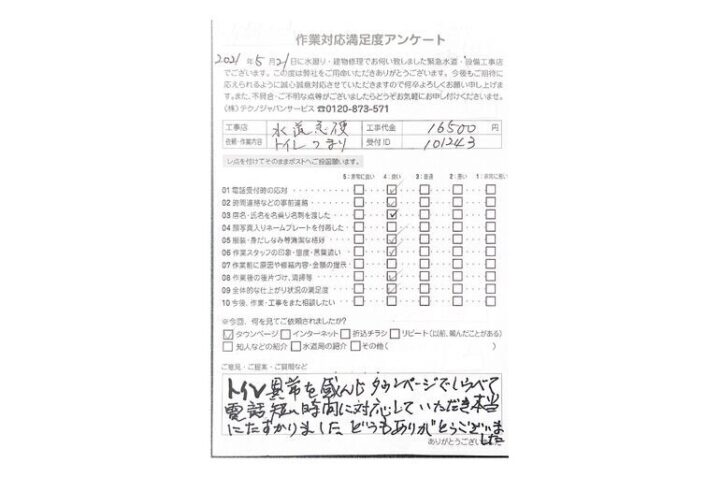 作業対応満足度アンケート
2021年5月21日に水廻り・建物修理でお伺い致しました緊急水道・設備工事店
でございます。この度は弊社をご用命いただきありがとうございます。今後もご期待に
応えられるように誠心誠意対応させていただきますので何卒よろしくお願い申し上げ
ます。また、不具合・ご不明な点等がございましたらどうぞお気軽にお申し付けくださいませ。
(株)テクノジャパンサービス ☎0120-873-571
工事店 水道急便 工事代金 16500 円
依頼・作業内容 トイレつまり 受付ID 101243
レ点を付けてそのままポストへご投函願います。
5:非常に良い 4:良い 3:普通 2:悪い 1:非常に悪い
01 電話受付時の応対
02 時間連絡などの事前連絡
03 店名・氏名を名乗り名刺を渡した
04 顔写真入りネームプレートを付帯した
05 服装・身だしなみ等清潔な格好
06 作業スタッフの印象・態度・言葉遣い
07 作業前に原因や修繕内容・金額の提示
08 作業後の後片づけ、清掃等
09 全体的な仕上がり状況の満足度
10 今後、作業・工事をまた相談したい
※今回、何を見てご依頼されましたか?
タウンページ インターネット 折込チラシ リピート(以前、頼んだことがある)
知人などの紹介 水道局の紹介 その他( )
ご意見・ご提案・ご質問など
トイレ異常を感んじタウンページでしらべて
電話短い時間に対応していただき本当
にたすかりました どうもありがとうございま
した
ありがとうございました